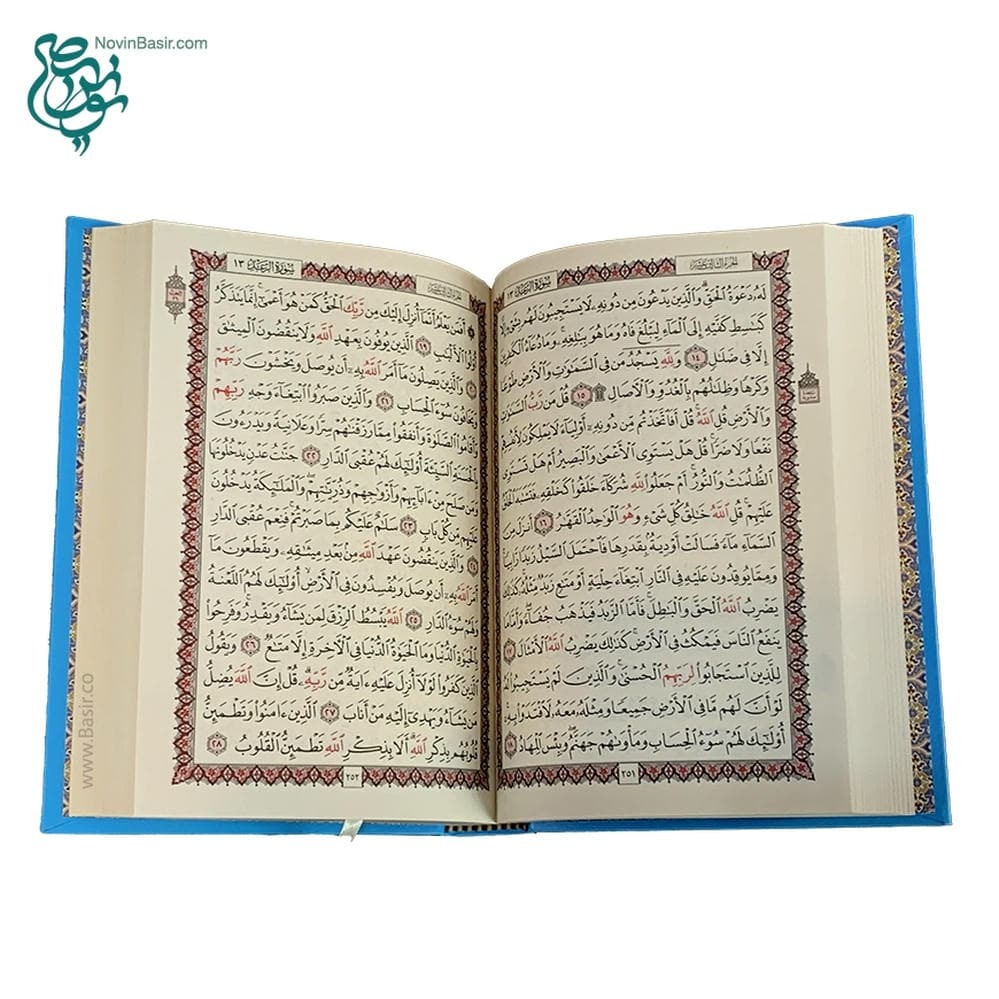 NovinBasir.com
الجزء الثالث عشر
سورة الرعد ١٣
لَهُ دَعْوَةُ الْحَقِّ وَالَّذِينَ يَدْعُونَ مِن دُونِهِ لَا يَسْتَجِيبُونَ لَهُم بِشَيْءٍ إِلَّا
كَبَاسِطِ كَفَّيْهِ إِلَى الْمَاءِ لِيَبْلُغَ فَاهُ وَمَا هُوَ بِبَالِغِهِ وَمَا دُعَاءُ الْكَافِرِينَ
إِلَّا فِي ضَلَالٍ ١٤ وَلِلَّهِ يَسْجُدُ مَن فِي السَّمَاوَاتِ وَالْأَرْضِ طَوْعًا
وَكَرْهًا وَظِلَالُهُم بِالْغُدُوِّ وَالْآصَالِ ۩ ١٥ قُلْ مَن رَّبُّ السَّمَاوَاتِ
وَالْأَرْضِ قُلِ اللَّهُ قُلْ أَفَاتَّخَذْتُم مِّن دُونِهِ أَوْلِيَاءَ لَا يَمْلِكُونَ لِأَنفُسِهِمْ
نَفْعًا وَلَا ضَرًّا قُلْ هَلْ يَسْتَوِي الْأَعْمَىٰ وَالْبَصِيرُ أَمْ هَلْ تَسْتَوِي
الظُّلُمَاتُ وَالنُّورُ أَمْ جَعَلُوا لِلَّهِ شُرَكَاءَ خَلَقُوا كَخَلْقِهِ فَتَشَابَهَ الْخَلْقُ
عَلَيْهِمْ قُلِ اللَّهُ خَالِقُ كُلِّ شَيْءٍ وَهُوَ الْوَاحِدُ الْقَهَّارُ ١٦ أَنزَلَ مِنَ
السَّمَاءِ مَاءً فَسَالَتْ أَوْدِيَةٌ بِقَدَرِهَا فَاحْتَمَلَ السَّيْلُ زَبَدًا رَّابِيًا
وَمِمَّا يُوقِدُونَ عَلَيْهِ فِي النَّارِ ابْتِغَاءَ حِلْيَةٍ أَوْ مَتَاعٍ زَبَدٌ مِّثْلُهُ كَذَٰلِكَ
يَضْرِبُ اللَّهُ الْحَقَّ وَالْبَاطِلَ فَأَمَّا الزَّبَدُ فَيَذْهَبُ جُفَاءً وَأَمَّا مَا
يَنفَعُ النَّاسَ فَيَمْكُثُ فِي الْأَرْضِ كَذَٰلِكَ يَضْرِبُ اللَّهُ الْأَمْثَالَ ١٧
لِلَّذِينَ اسْتَجَابُوا لِرَبِّهِمُ الْحُسْنَىٰ وَالَّذِينَ لَمْ يَسْتَجِيبُوا لَهُ
لَوْ أَنَّ لَهُم مَّا فِي الْأَرْضِ جَمِيعًا وَمِثْلَهُ مَعَهُ لَافْتَدَوْا بِهِ
أُولَٰئِكَ لَهُمْ سُوءُ الْحِسَابِ وَمَأْوَاهُمْ جَهَنَّمُ وَبِئْسَ الْمِهَادُ ١٨
٢٥١
الجزء الثالث عشر
سورة الرعد ١٣
أَفَمَن يَعْلَمُ أَنَّمَا أُنزِلَ إِلَيْكَ مِن رَّبِّكَ الْحَقُّ كَمَنْ هُوَ أَعْمَىٰ إِنَّمَا يَتَذَكَّرُ
أُولُو الْأَلْبَابِ ١٩ الَّذِينَ يُوفُونَ بِعَهْدِ اللَّهِ وَلَا يَنقُضُونَ الْمِيثَاقَ
٢٠ وَالَّذِينَ يَصِلُونَ مَا أَمَرَ اللَّهُ بِهِ أَن يُوصَلَ وَيَخْشَوْنَ رَبَّهُمْ
وَيَخَافُونَ سُوءَ الْحِسَابِ ٢١ وَالَّذِينَ صَبَرُوا ابْتِغَاءَ وَجْهِ رَبِّهِمْ
وَأَقَامُوا الصَّلَاةَ وَأَنفَقُوا مِمَّا رَزَقْنَاهُمْ سِرًّا وَعَلَانِيَةً وَيَدْرَءُونَ
بِالْحَسَنَةِ السَّيِّئَةَ أُولَٰئِكَ لَهُمْ عُقْبَى الدَّارِ ٢٢ جَنَّاتُ عَدْنٍ يَدْخُلُونَهَا
وَمَن صَلَحَ مِنْ آبَائِهِمْ وَأَزْوَاجِهِمْ وَذُرِّيَّاتِهِمْ وَالْمَلَائِكَةُ يَدْخُلُونَ
عَلَيْهِم مِّن كُلِّ بَابٍ ٢٣ سَلَامٌ عَلَيْكُم بِمَا صَبَرْتُمْ فَنِعْمَ عُقْبَى الدَّارِ
٢٤ وَالَّذِينَ يَنقُضُونَ عَهْدَ اللَّهِ مِن بَعْدِ مِيثَاقِهِ وَيَقْطَعُونَ مَا
أَمَرَ اللَّهُ بِهِ أَن يُوصَلَ وَيُفْسِدُونَ فِي الْأَرْضِ أُولَٰئِكَ لَهُمُ اللَّعْنَةُ
وَلَهُمْ سُوءُ الدَّارِ ٢٥ اللَّهُ يَبْسُطُ الرِّزْقَ لِمَن يَشَاءُ وَيَقْدِرُ وَفَرِحُوا
بِالْحَيَاةِ الدُّنْيَا وَمَا الْحَيَاةُ الدُّنْيَا فِي الْآخِرَةِ إِلَّا مَتَاعٌ ٢٦ وَيَقُولُ
الَّذِينَ كَفَرُوا لَوْلَا أُنزِلَ عَلَيْهِ آيَةٌ مِّن رَّبِّهِ قُلْ إِنَّ اللَّهَ يُضِلُّ
مَن يَشَاءُ وَيَهْدِي إِلَيْهِ مَنْ أَنَابَ ٢٧ الَّذِينَ آمَنُوا وَتَطْمَئِنُّ
قُلُوبُهُم بِذِكْرِ اللَّهِ أَلَا بِذِكْرِ اللَّهِ تَطْمَئِنُّ الْقُلُوبُ ٢٨
٢٥٢
www.Basir.co